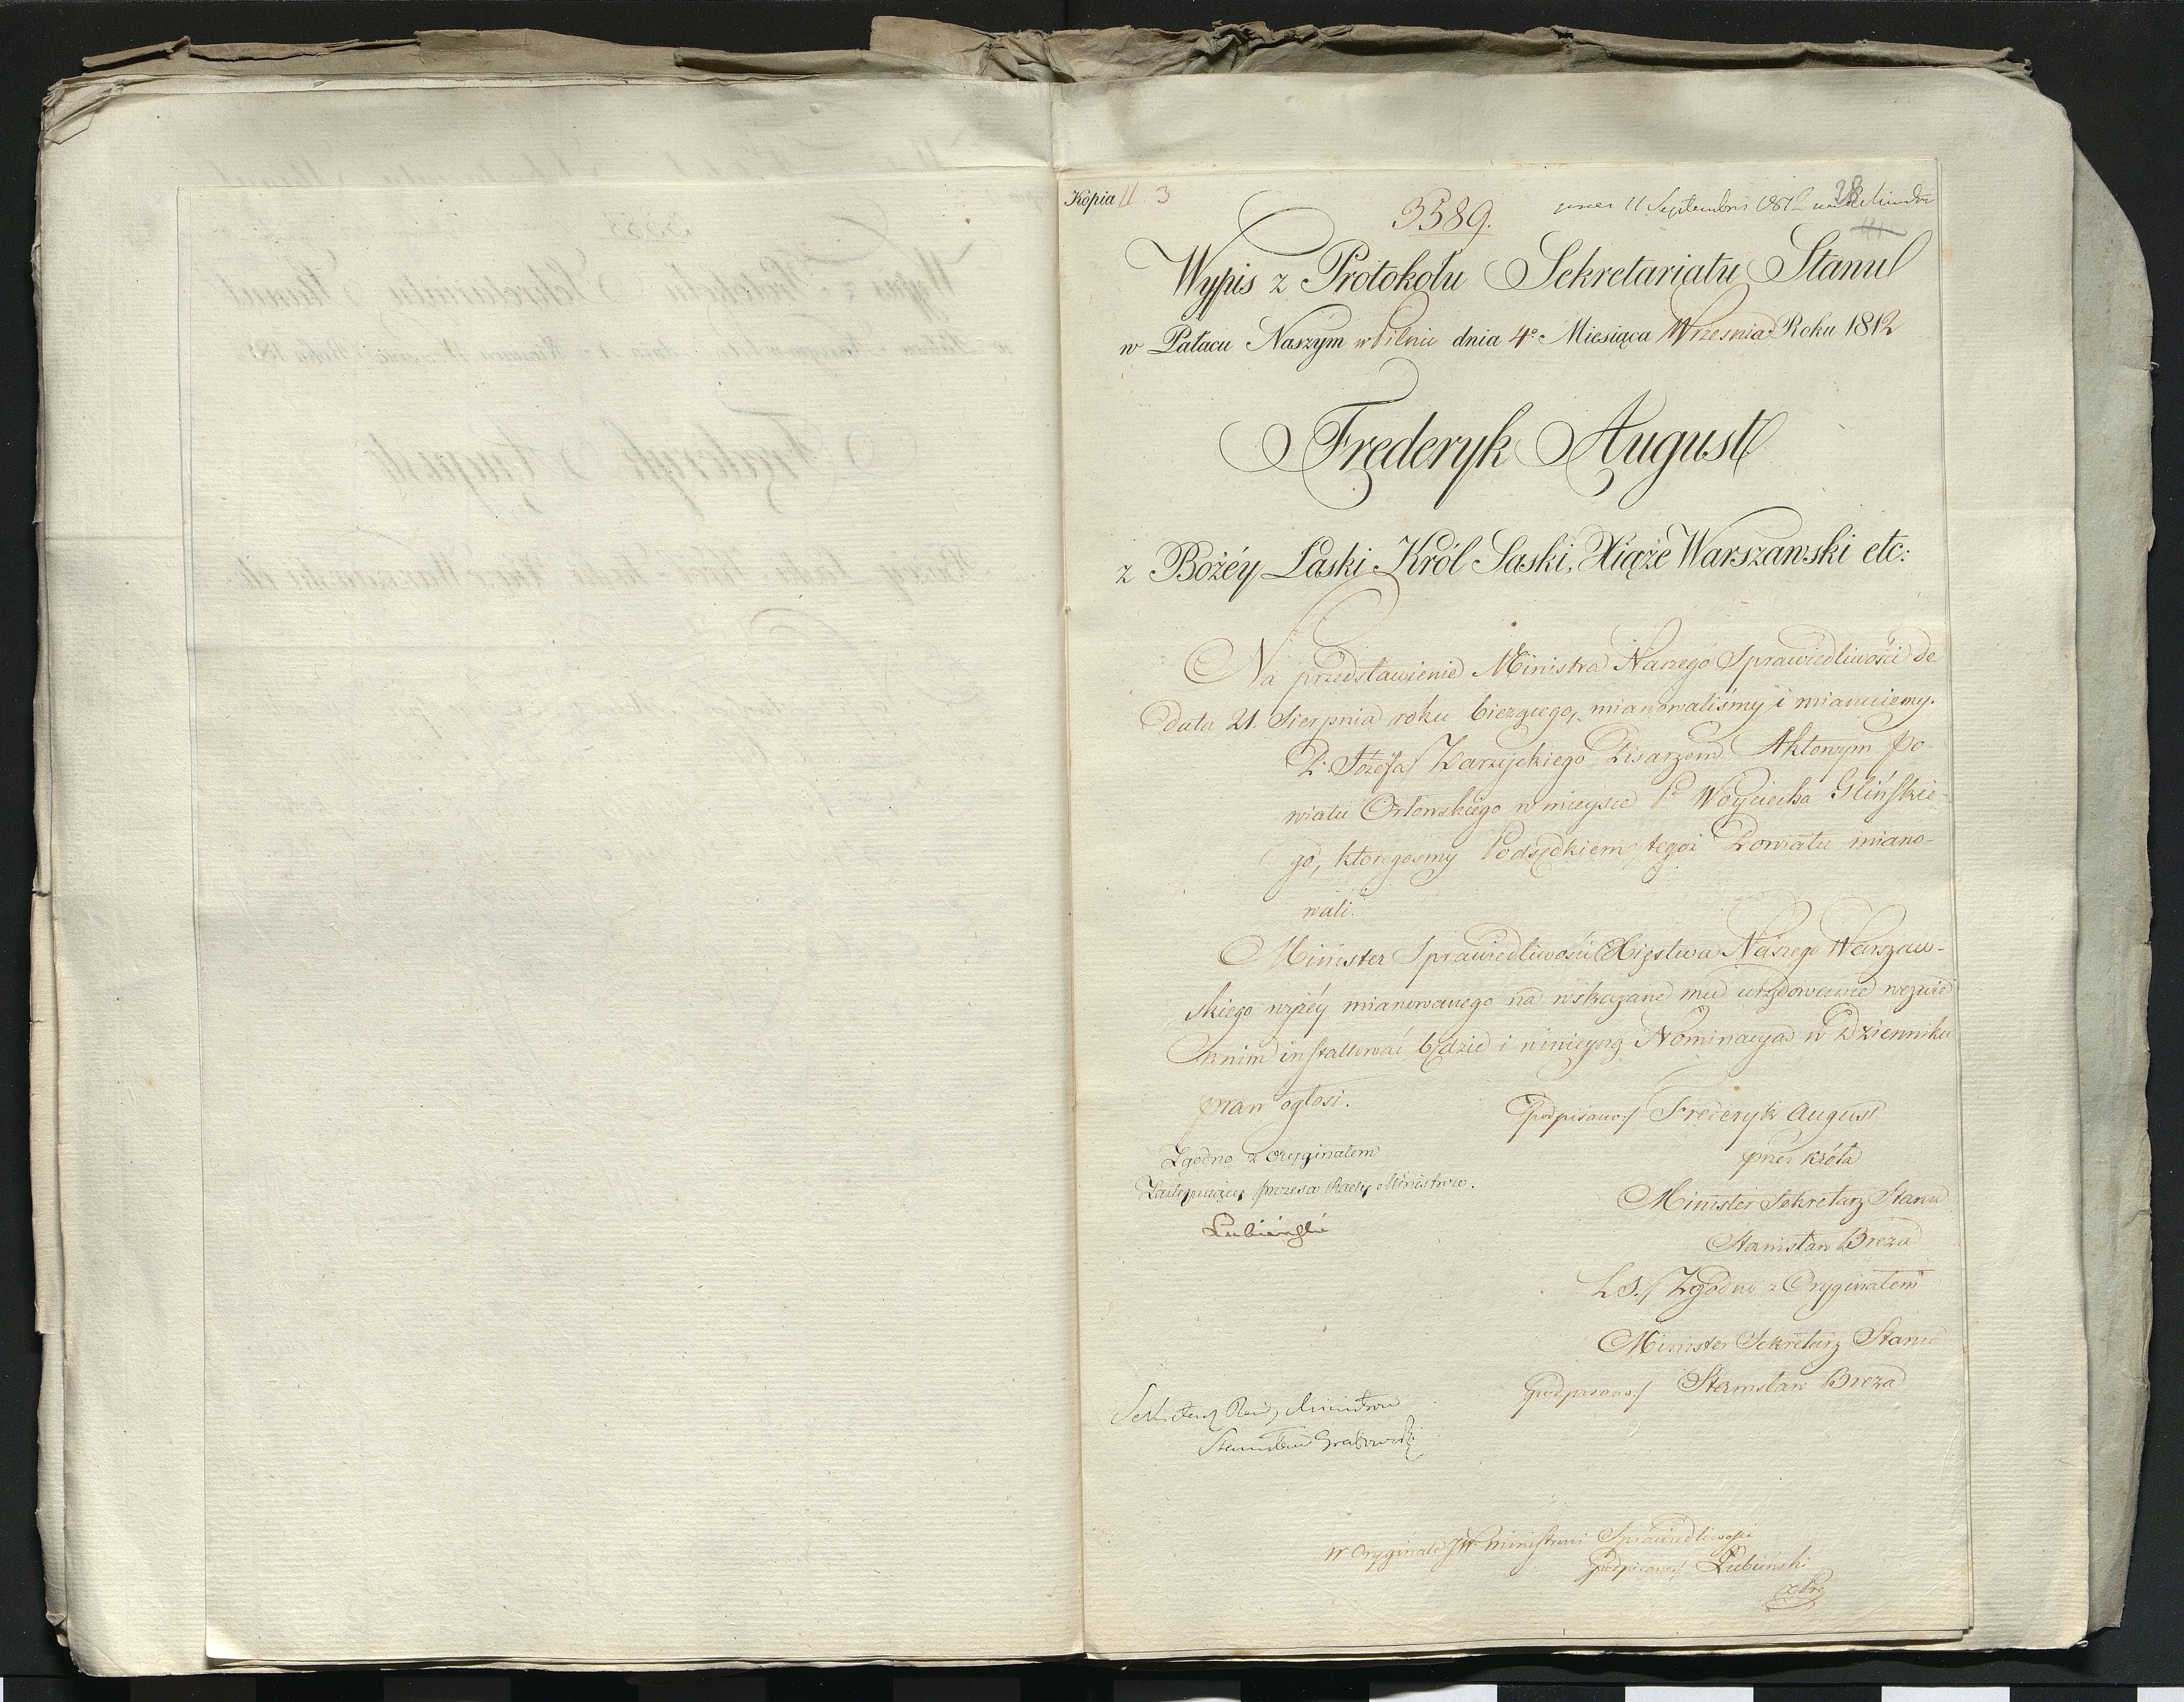 Kopia 11. 3
3589.
11 Septembris 1812
28
Wypis z Protokołu Sekretariatu Stanu
w Pałacu Naszym w Pilnic dnia 4º Miesiąca Wrzesnia Roku 1812
Frederyk August
z Bożéy Łaski Król Saski, Xiąże Warszawski etc:
Na przedstawienie Ministra Naszego Sprawiedliwości de
dato 21. Sierpnia roku bieżącego, mianowaliśmy i mianuiemy.
P. Józefa Pisarzem Aktowym Po-
wiatu Orłowskiego w mieysce P. Woyciecha Glińskie-
go, któregosmy Podsędkiem tegoż Powiatu miano-
wali.
Minister Sprawiedliwości Xięstwa Naszego Warszaw-
skiego wyżéy mianowanego na wskazane mu urzędowanie wezwie
w nim installować będzie i ninieyszą Nominacyą w Dzienniku
praw ogłosi.
podpisano/ Frederyk August
przez Króla
Minister Sekretarz Stanu
Stanisław Breza
L.S./ Zgodno z Oryginałem
Minister Sekretarz Stanu
podpisano/ Stanisław Breza
Zgodno z Oryginałem
Zastępuiący prezesa Rady Ministrów.
Łubieński
Sekretarz Rady Ministrów
Stanisław Grabowski
W Oryginale JW Ministrowi Sprawiedliwości
podpisano/ Łubieński